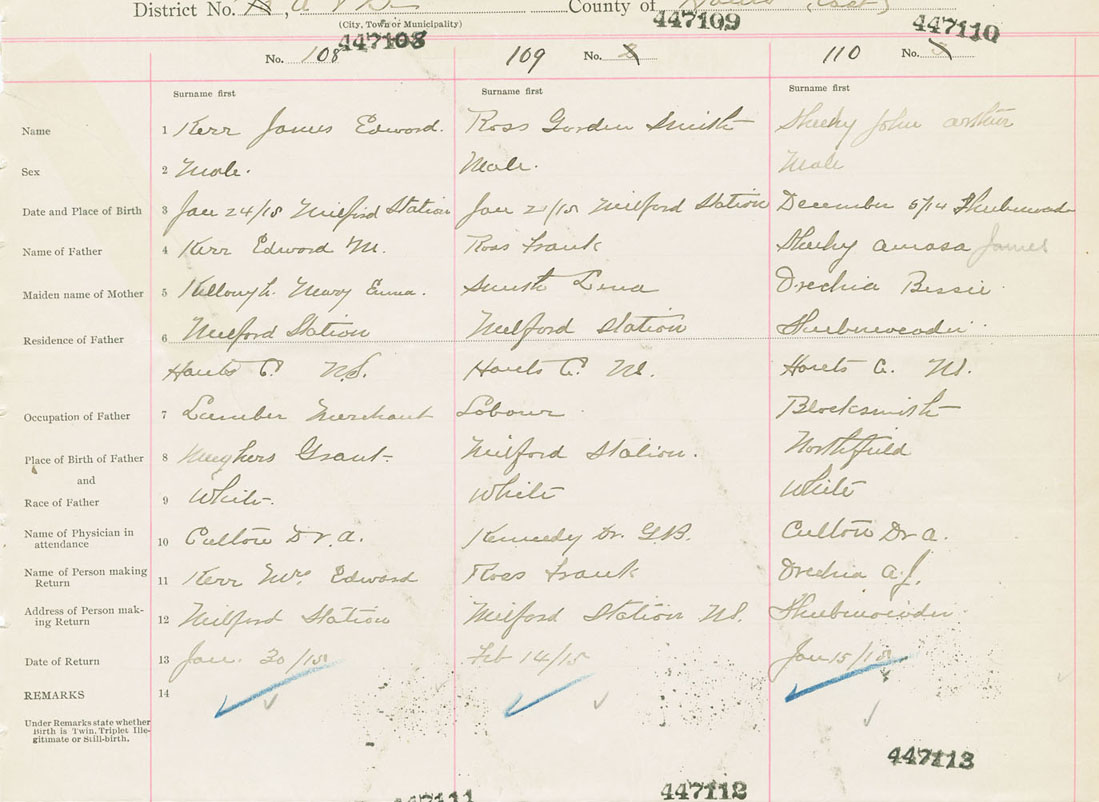 District No. County of
(City, Town or Municipality)
447108 447109 447110
No. 108 109 No. 2 110 No. 3
Surname first Surname first Surname first
Name 1 Kerr James Edward. Ross Gorden Smith John Arthur
Sex 2 Male. Male. Male
Date and Place of Birth 3 Jan 24/15 Milford Station Jan 21/15 Milford Station December 6/14
Name of Father 4 Kerr Edward M. Ross Frank Amasa James
Maiden name of Mother 5 Killough. Mary Emma. Smith Lena Drechia Bessie
Residence of Father 6 Milford Station Milford Station
Hants C. N.S. Hants C. N.S. Hants C. N.S.
Occupation of Father 7 Lumber Merchant Labour Blacksmith
Place of Birth of Father 8 Meaghers Grant. Milford Station. Northfield
and
Race of Father 9 White. White White
Name of Physician in attendance 10 Cultou Dr. A. Kennedy Dr. G.B. Cultou Dr A.
Name of Person making Return 11 Kerr Mrs Edward Ross Frank Drechia A.J.
Address of Person mak-ing Return 12 Milford Station Milford Station N.S.
Date of Return 13 Jan. 30/15 Feb 14/15 Jan 15/15
REMARKS 14
Under Remarks state whether
Birth is Twin, Triplet Ille-
gitimate or Still-birth.
447113
447111 447112